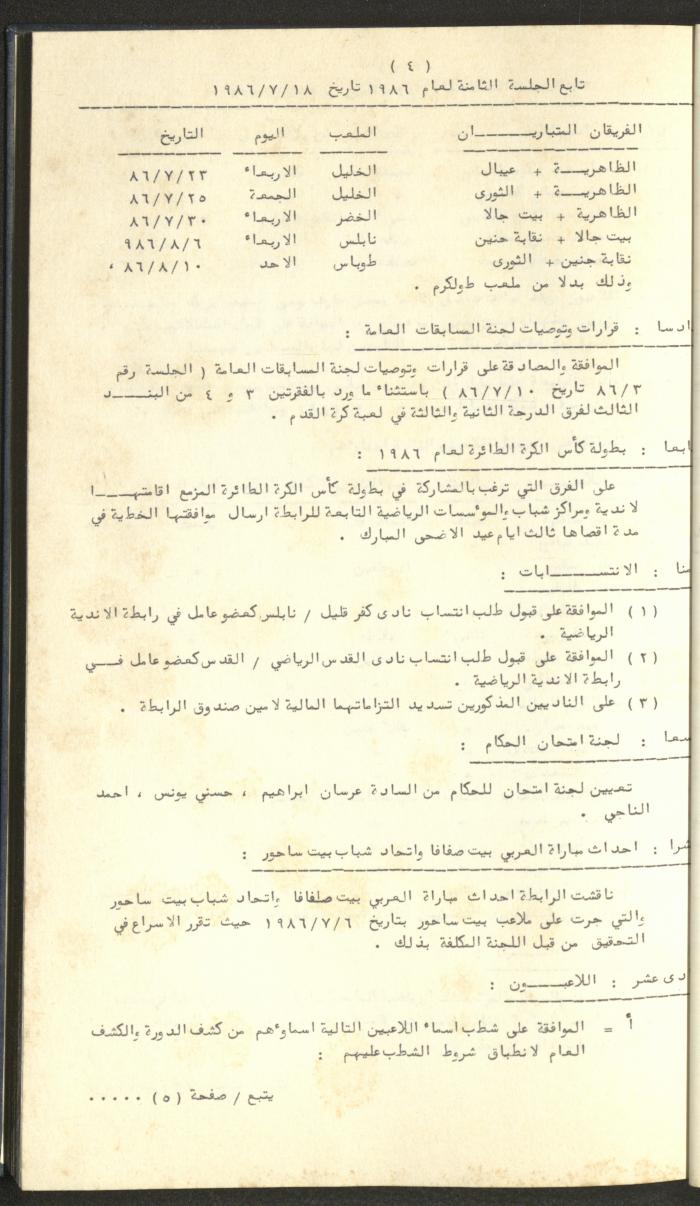 ( ٤ )
تابع الجلسة الثامنة لعام ١٩٨٦ تاريخ ١٩٨٦/٧/١٨
الفريقان المتباريـــــــان الملعب اليوم التاريخ
الظاهريـــة + عيبال الخليل الاربعاء ٨٦/٧/٢٣
الظاهريـــة + الثورى الخليل الجمعة ٨٦/٧/٢٥
الظاهرية + بيت جالا الخضر الاربعاء ٨٦/٧/٣٠
بيت جالا + نقابة جنين نابلس الاربعاء ٩٨٦/٨/٦
نقابة جنين + الثورى طوباس الاحد ٨٦/٨/١٠ ،
وذلك بدلا من ملعب طولكرم .
ادسا : قرارات وتوصيات لجنة المسابقات العامة :
الموافقة والمصادقة على قرارات وتوصيات لجنة المسابقات العامة ( الجلسة رقم
٨٦/٣ تاريخ ٨٦/٧/١٠ ) باستثناء ما ورد بالفقرتين ٣ و ٤ من البنـــــد
الثالث لفرق الدرجة الثانية والثالثة في لعبة كرة القدم .
ابعا : بطولة كأس الكرة الطائرة لعام ١٩٨٦ :
على الفرق التي ترغب بالمشاركة في بطولة كأس الكرة الطائرة المزمع اقامتهـــــا
لاندية ومراكز شباب والموءسسات الرياضية التابعة للرابطة ارسال موافقتها الخطية في
مدة اقصاها ثالث ايام عيد الاضحى المبارك .
منا : الانتســـــــابات :
( ١ ) الموافقة على قبول طلب انتساب نادى كفر قليل / نابلس كعضو عامل في رابطة الاندية
الرياضية .
( ٢ ) الموافقة على قبول طلب انتساب نادى القدس الرياضي / القدس كعضو عامل فـــي
رابطة الاندية الرياضية .
( ٣ ) على الناديين المذكورين تسديد التزاماتهما المالية لامين صندوق الرابطة .
سعا : لجنة امتحان الحكام :
تعيين لجنة امتحان للحكام من السادة عرسان ابراهيم ، حسني يونس ، احمد
الناجي .
شرا : احداث مباراة العربي بيت صفافا واتحاد شباب بيت ساحور :
ناقشت الرابطة احداث مباراة العربي بيت صلفافا واتحاد شباب بيت ساحور
والتي جرت على ملاعب بيت ساحور بتاريخ ١٩٨٦/٧/٦ حيث تقرر الاسراع في
التحقيق من قبل اللجنة المكلفة بذلك .
ادى عشر : اللاعبـــــون :
أ = الموافقة على شطب اسماء اللاعبين التالية اسماوءهم من كشف الدورة والكشف
العام لانطباق شروط الشطب عليهم :
يتبع / صفحة (٥) .....